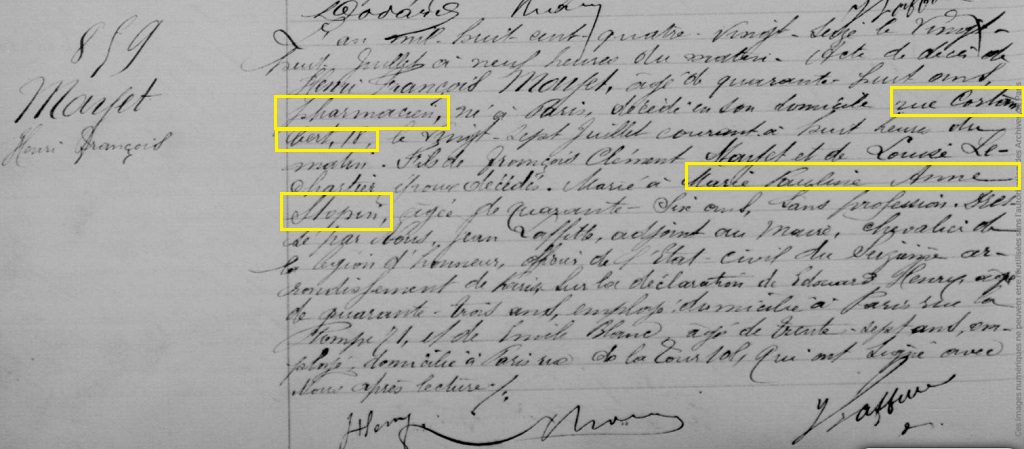 859
Maujet
Henri François
L'an mil huit cent quatre-vingt-seize le vingt-
huit Juillet à neuf heures du matin. Acte de décès de
Henri François Maujet, âgé de quarante-huit ans,
pharmacien, né à Paris, décédé en son domicile rue Cortam
bert, 11, le vingt-sept Juillet courant à huit heures du
matin. Fils de François Clément Maujet et de Louise Le-
époux décédés. Marié à Marie Pauline Anne
âgée de quarante-six ans, sans profession. Dres-
sé par Nous, Jean Laffitte, adjoint au Maire, chevalier de
la légion d'honneur, officier de l'Etat-civil du Seizième ar-
rondissement de Paris sur la déclaration de Edouard Henry, âgé
de quarante-trois ans, employé domicilié à Paris rue de la
Pompe 71, et de Emile Blanc âgé de trente-sept ans, em-
ployé, domicilié à Paris rue de la Tour 101, qui ont signé avec
Nous après lecture./.
Henry